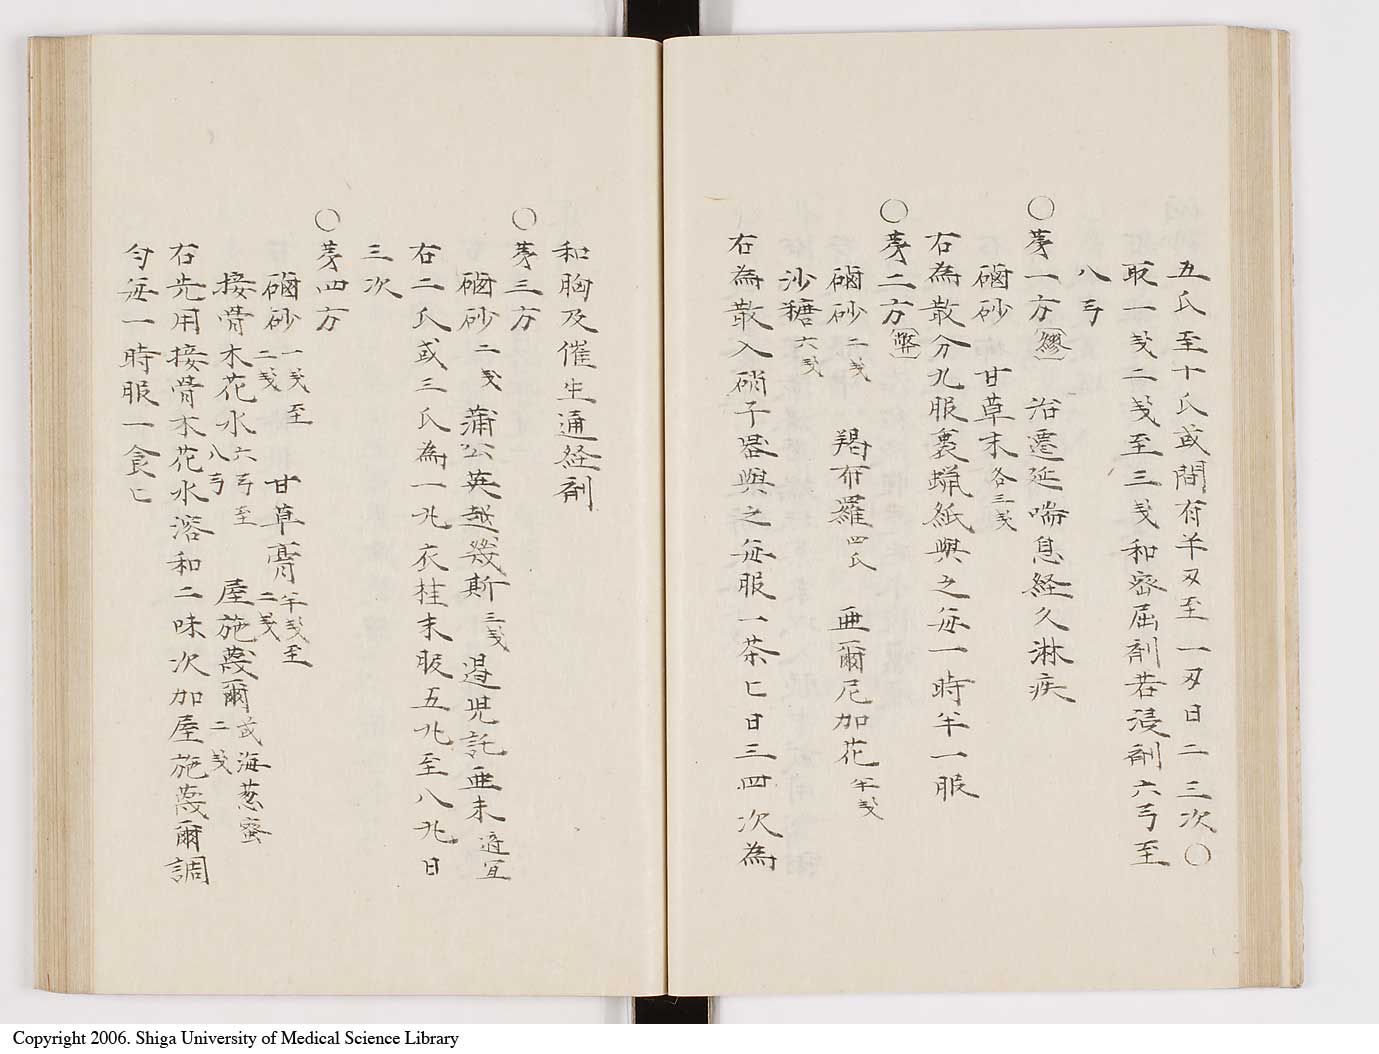 五氏至十氏或間有半刄至一刄日二三次○
取一戔二戔至三戔和密屈剤若浸剤六弓至
八弓
○第一方 治遷延喘息経久淋疾
磠砂 甘草末各三戔
右為散分九服裹蝋紙與之毎一時半一服
○第二方
磠砂二戔 羯布羅四氏 亜爾尼加花半戔
沙糖六戔
右為散入硝子器與之毎服一茶匕日三四次為
和胸及催生通経剤
○第三方
磠砂二戔 蒲公英越幾斯三戔 遏児託亜末適宜
右二氏或三氏為一丸衣桂末服五丸至八丸日
三次
○第四方
磠砂一戔至二戔 甘草膏半戔至二戔
接骨木花水六弓至八弓 屋施蔑爾或海葱蜜二戔
右先用接骨木花水溶和二味次加屋施蔑爾調
匀毎一時服一食匕
Copyright 2006. Shiga University of Medical Science Library